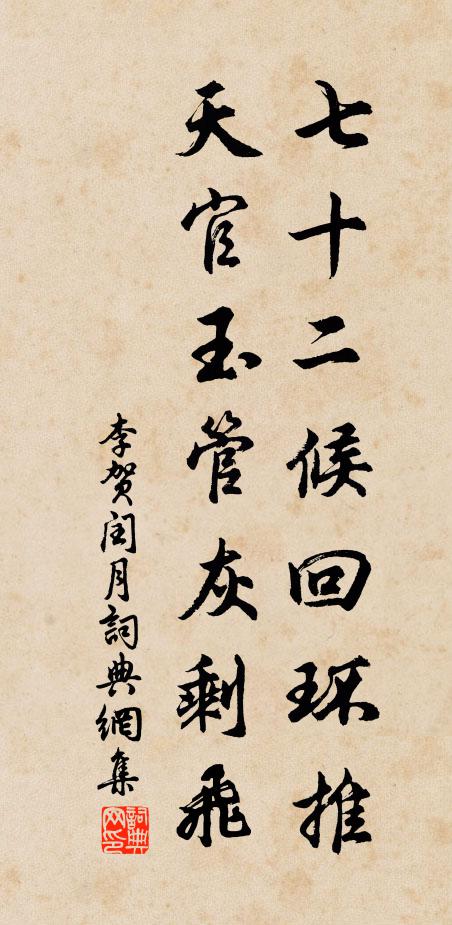 七十二候回环推
天官玉管灰剩飛
李贺闰月詞典網集
詞典网印